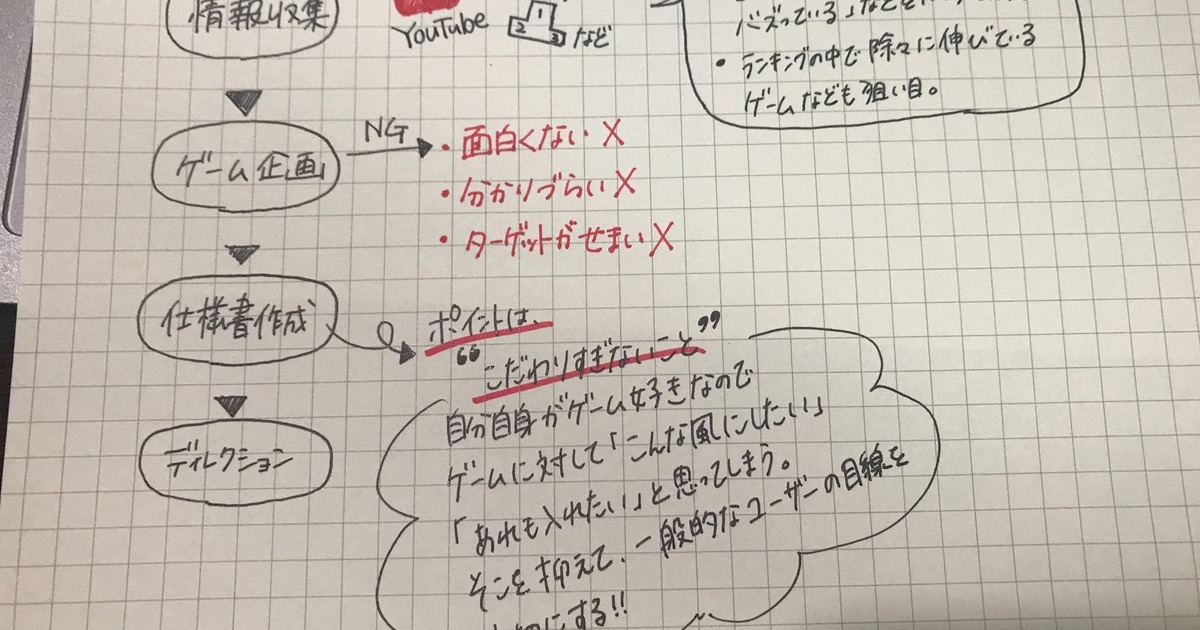 情報収集
YouTube
1
2 3
など
バズっている」など
・ランキングの中で除々に伸びている
ゲームなども狙い目。
ゲーム企画
NG
・面白くない X
・分かりづらい X
・ターゲットがせまい X
仕様書作成
ポイントは、
“こだわりすぎないこと”
自分自身がゲーム好きなので
ゲームに対して「こんな風にしたい」
「あれも入れたい」と思ってしまう。
そこを抑えて、一般的なユーザーの目線を
にする!!
ディレクション